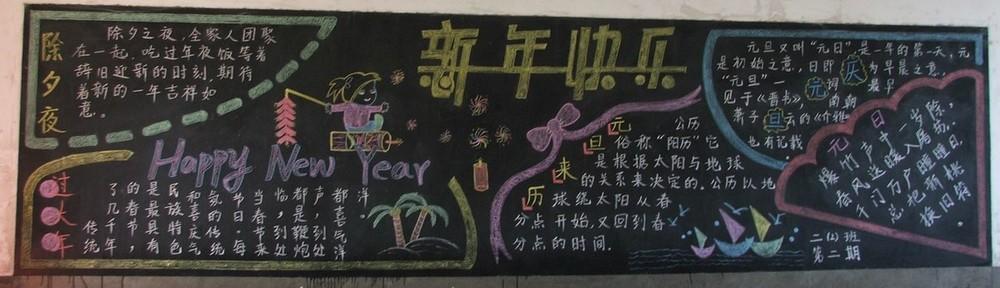 除夕夜
除夕之夜，全家人团聚
在一起，吃过年夜饭等着
辞旧迎新的时刻，期待
着新的一年吉祥如
意。
新年快乐
Happy New Year
过大年
传统
了几千年，
的春节，
是最具有
民族特色
和喜文气
气的传统
节日。每
当春节来
临，
都是
声声，到处
都是喜
洋洋
元旦来历
公历
俗称“阳历”它
是根据太阳与地球
的关系来决定的。公历以地
球绕太阳从春
分点开始，又回到春
分点的时间.
元旦又叫“元日”，是一年的第一天，元
是初始之意，日即
为早晨之意，
“元旦”一
元词
最早
见于《晋书》，
南朝
萧子
旦云的《介雅》
也有记载
庆
元日
爆竹声中一岁除，
春风送暖入屠苏，
千门万户曈曈日，
总把新桃
换旧符
二(2)班
第二期